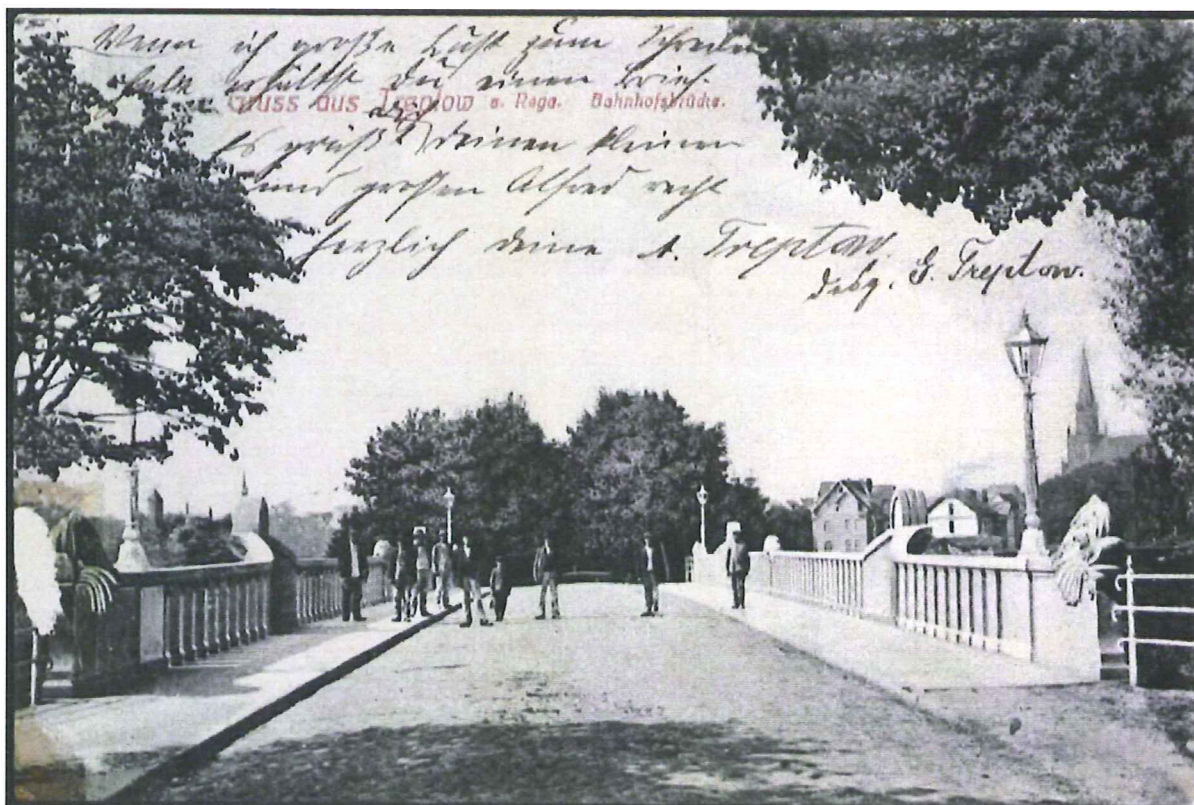 Wenn ich große Lust zum Schreiben
habe erhältst Du einen Brief.
Gruss aus Treptow a. Rega. Bahnhofsbrücke.
Es grüßt dich deinen kleinen
und großen Alfred recht
herzlich deine A. Treptow.
G. Treptow.